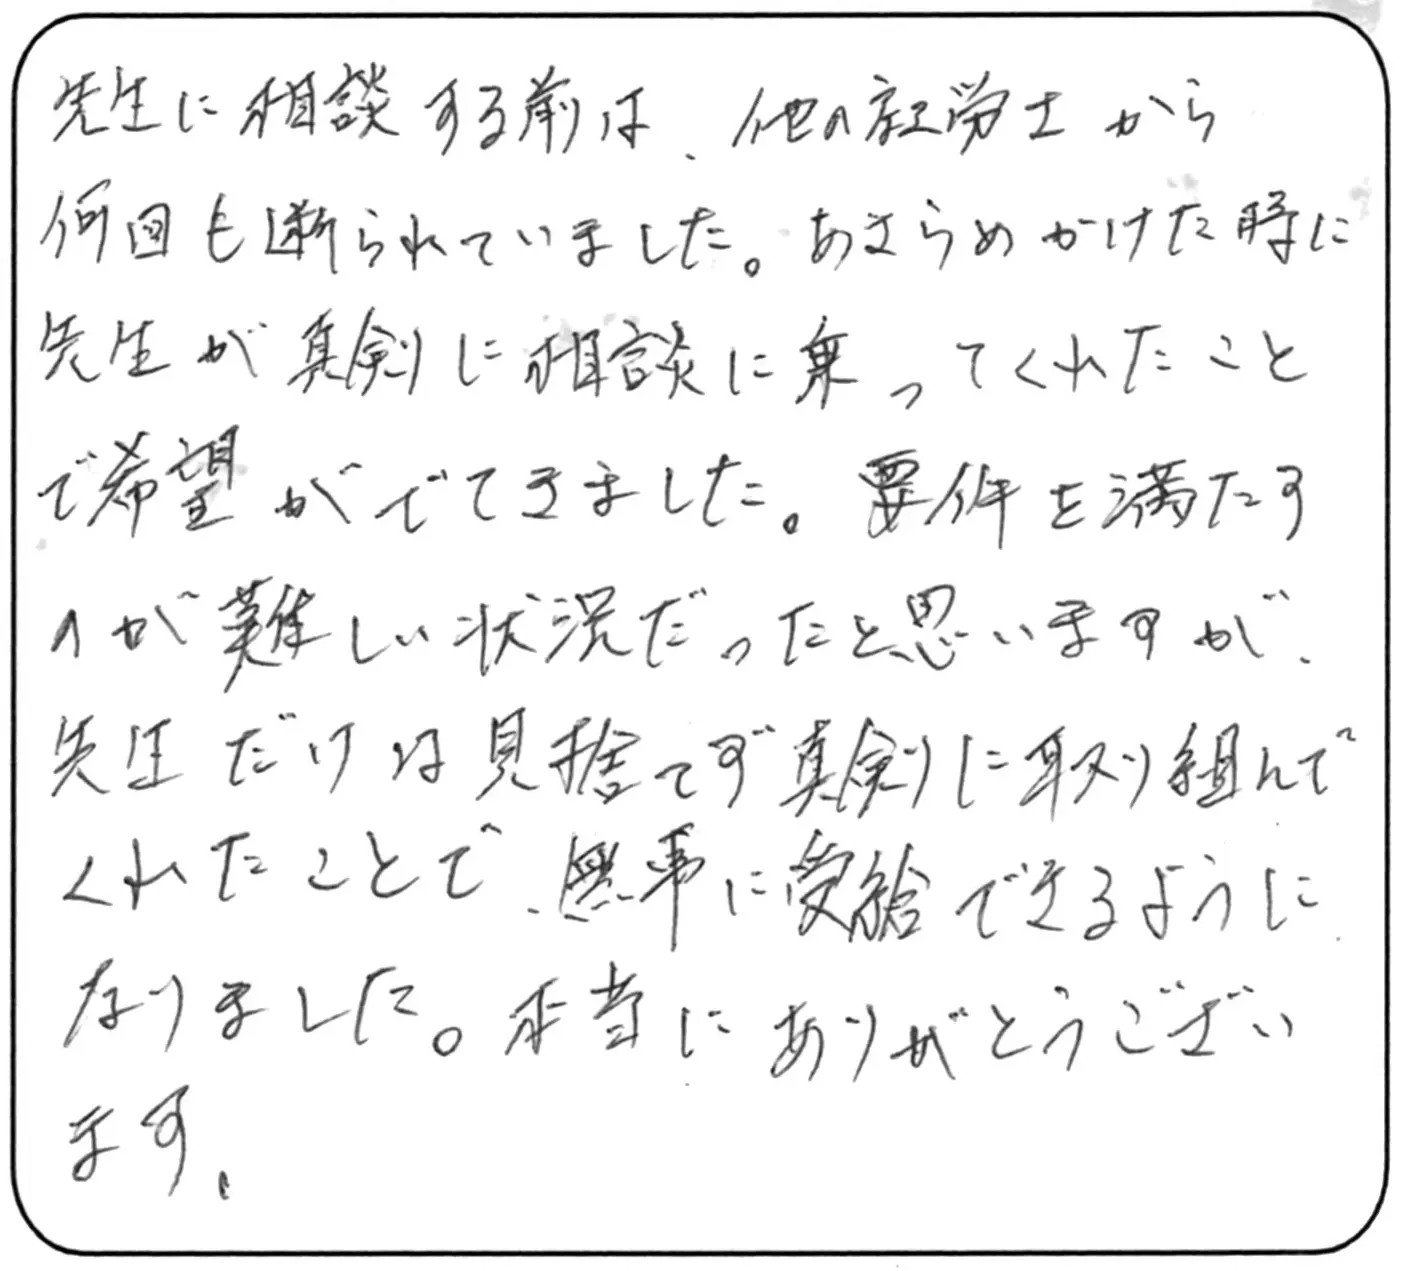 先生に相談する前は、他の社労士から
何回も断られていました。あきらめかけた時に
先生が真剣に相談に乗ってくれたこと
で希望がでてきました。要件を満たす
のが難しい状況だったと思いますが、
先生だけは見捨てず真剣に取り組んで
くれたことで、無事に受給できるように
なりました。本当にありがとうござい
ます。